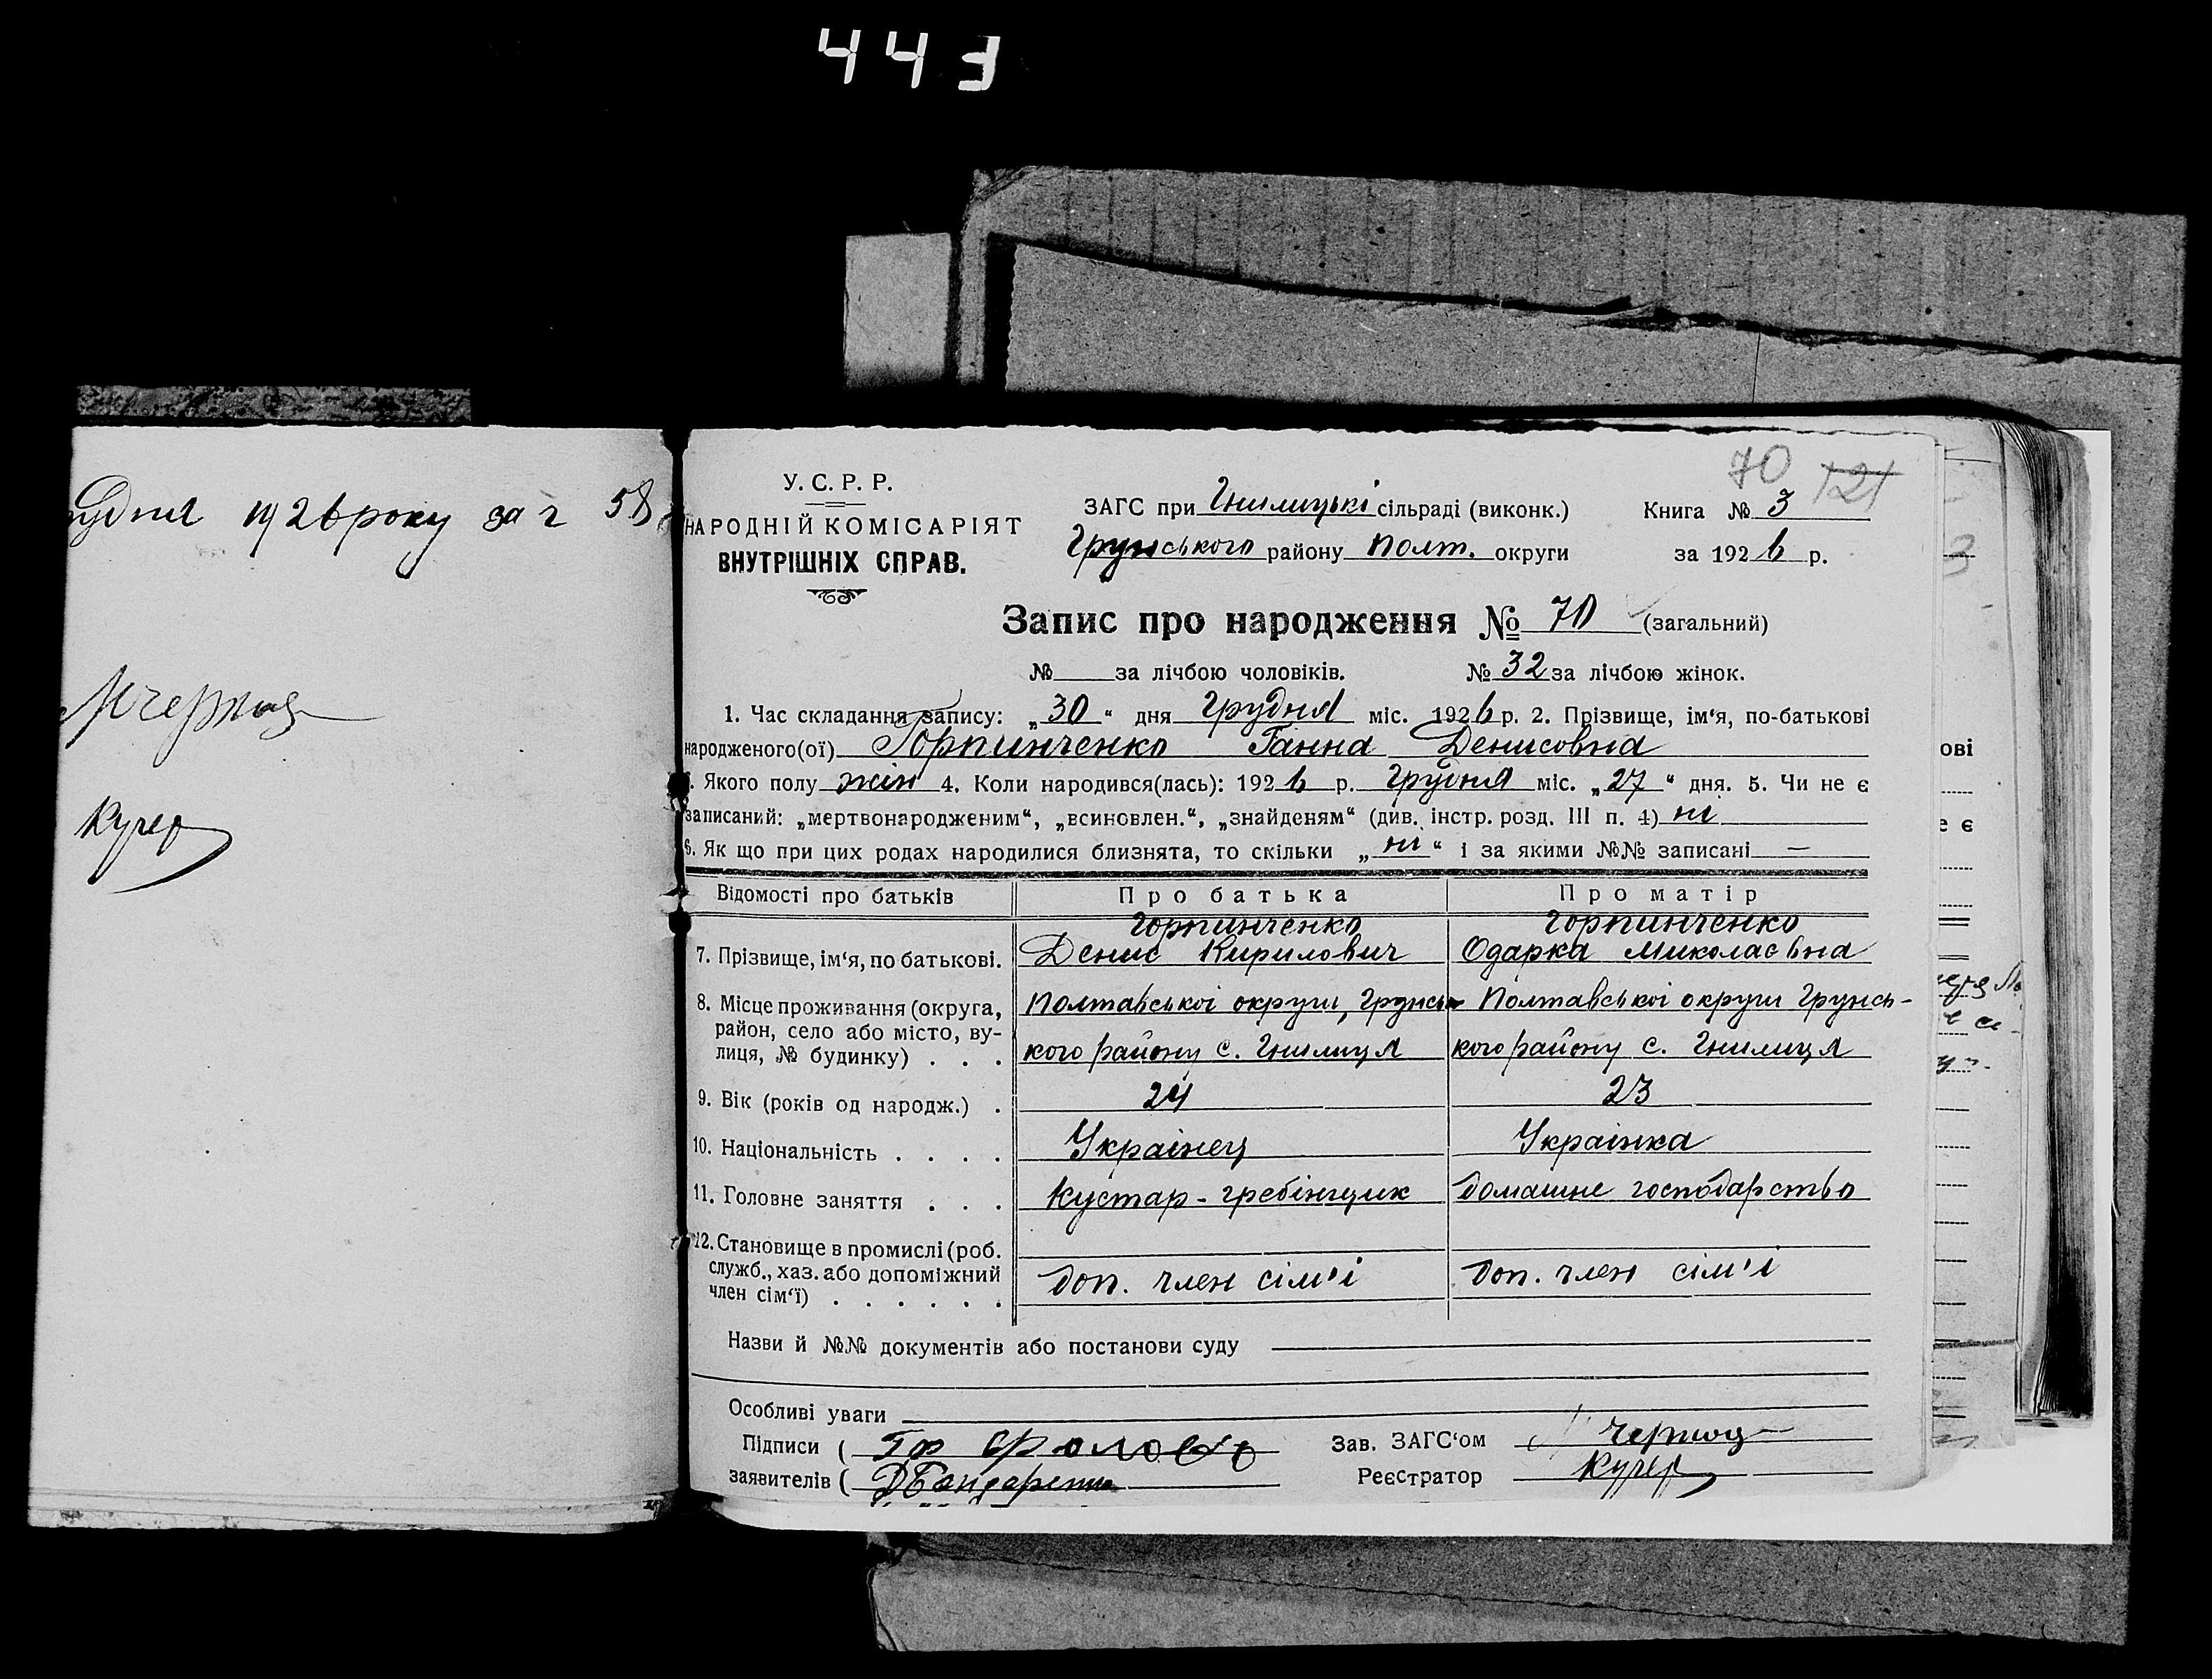 443
удня 1926 року за ч 58
Кучер
У. С. Р. Р.
НАРОДНІЙ КОМІСАРІЯТ
ВНУТРІШНІХ СПРАВ.
70 121
ЗАГС при Гнилицькі сільраді (виконк.) Книга № 3
Грунського району Полт. округи за 1926 р.
Запис про народження № 70 (загальний)
№ за лічбою чоловіків. № 32 за лічбою жінок.
1. Час складання запису: „30“ дня Грудня міс. 1926 р. 2. Прізвище, ім‘я, по-батькові
народженого(ої) Горпинченко Ганна Денисовна
. Якого полу жін 4. Коли народився(лась): 1926 р. Грудня міс. „27“ дня. 5. Чи не є
записаний: „мертвонародженим“, „всиновлен.“, „знайденям“ (див. інстр. розд. III п. 4) ні
6. Як що при цих родах народилися близнята, то скільки „ні“ і за якими №№ записані —
Відомості про батьків Про батька Про матір
Горпинченко Горпинченко
7. Прізвище, ім‘я, по батькові. Денис Кирилович Одарка Миколаєвна
8. Місце проживання (округа, Полтавськоі округи, Грунсь- Полтавськоі округи Грунсь-
район, село або місто, ву-
лиця, № будинку) . . . кого району с. Гнилиця кого району с. Гнилиця
9. Вік (років од народж.) . 24 23
10. Національність . . . . Украінец Украінка
11. Головне заняття . . . Кустар - гребінщик домашне господарство
12. Становище в промислі (роб.
служб., хаз. або допоміжний доп. член сім'і доп. член сім'і
член сім‘ї) . . . . . .
Назви й №№ документів або постанови суду
Особливі уваги
Підписи ( Зав. ЗАГС‘ом
заявителів ( Реєстратор Кучер
ові
е є